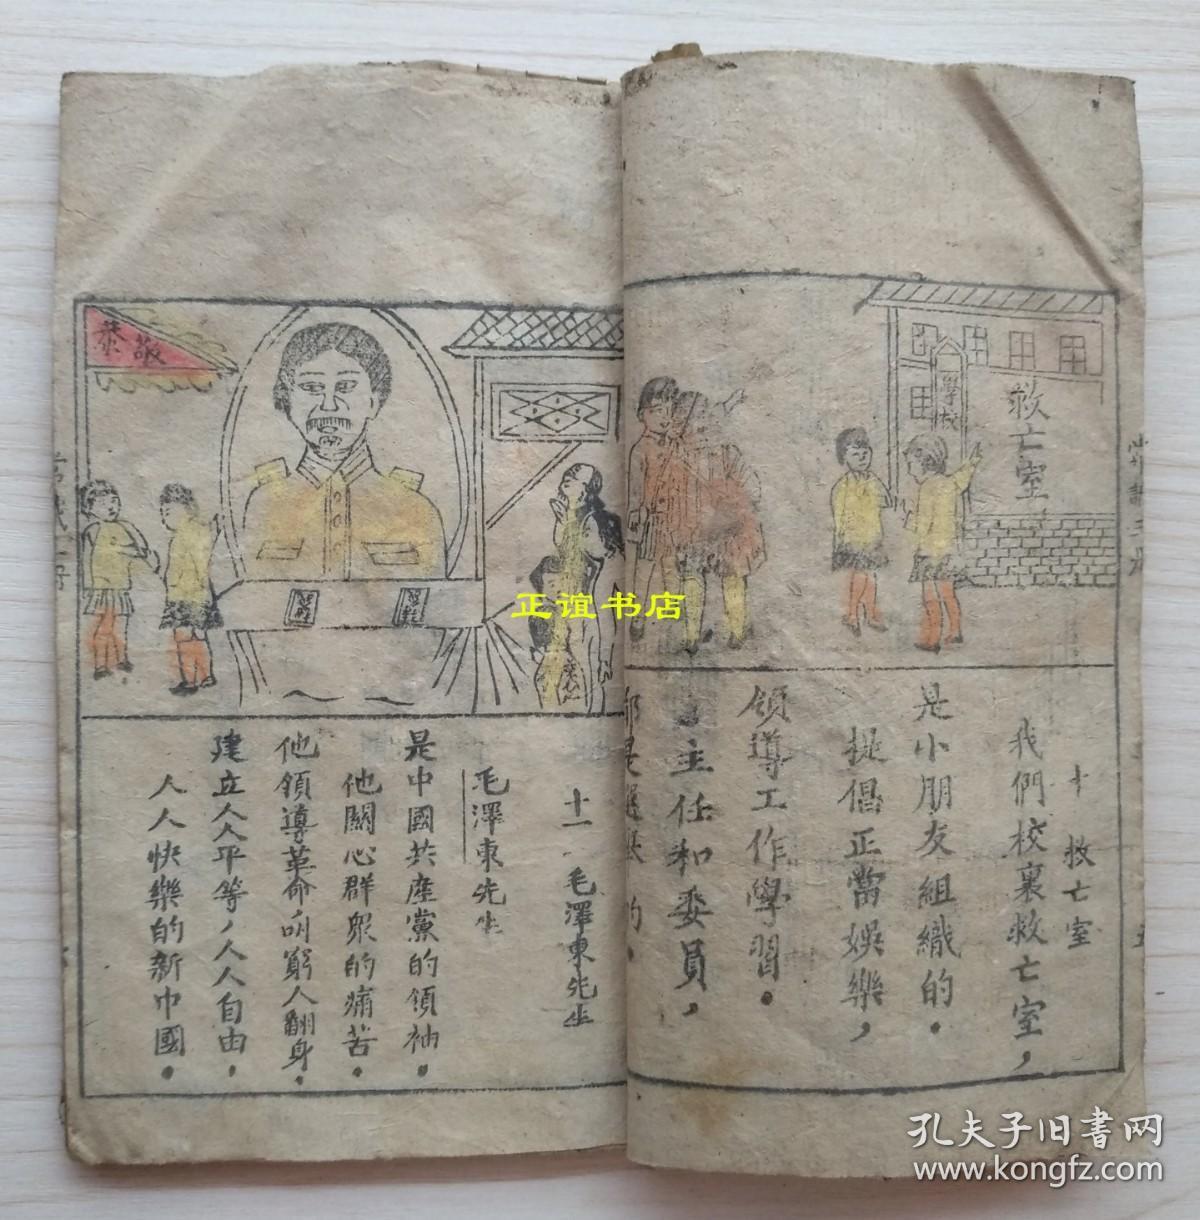 救亡室
學校
十 救亡室
我們校裏救亡室，
是小朋友組織的．
提倡正當娛樂，
領導工作學習．
主任和委員，
都是選舉的．
敬
十一 毛澤東先生
毛澤東先生
是中國共產黨的領袖．
他關心群眾的痛苦．
他領導革命叫窮人翻身．
建立人人平等，人人自由，
人人快樂的新中國．
正谊书店
孔夫子旧書网
www.kongfz.com